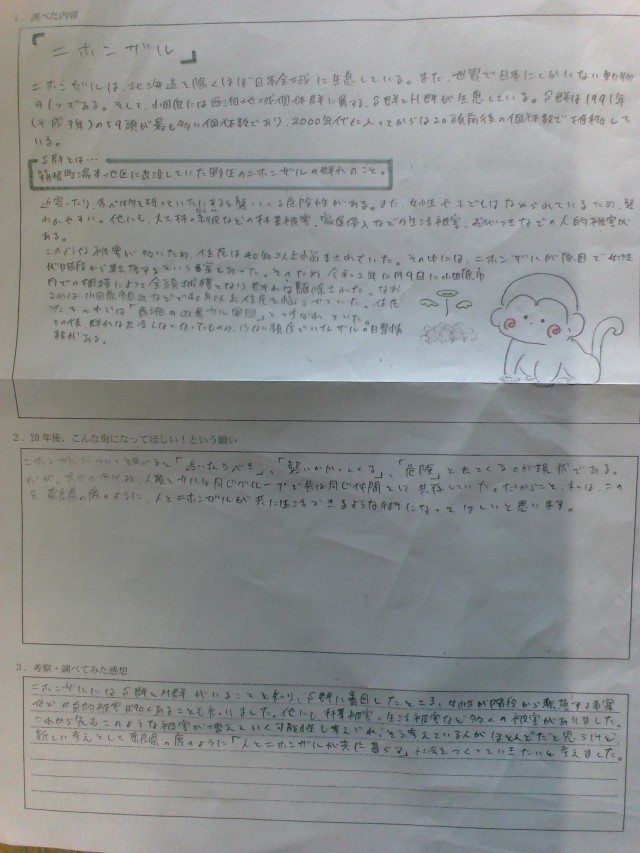 1．調べた内容
「ニホンザル」
ニホンザルは、北海道を除くほぼ日本全域に生息している。また、世界で日本にしかいない動物
の1つである。そして、小田原には西湘地域個体群に属する、S群とH群が生息している。S群は1991年
(平成3年)の59頭が最も多い個体数であり、2000年代に入ってからは20頭前後の個体数で推移して
いる。
S群とは…
箱根町湯本地区に出没していた野生のニホンザルの群れのこと。
近寄ったり、食べ物を持っていたりすると襲ってくる危険性がある。また、女性や子どもはなめられているため、襲
われやすい。他にも、人工林の剥皮などの林業被害、家屋侵入などの生活被害、おいつきなどの人的被害が
ある。
このような被害が多いため、住民は40年以上悩まされていた。その中には、ニホンザルが原因で女性
が階段から転落するという事実もあった。そのため、令和2年に
内での捕獲によって全頭捕獲となり群れは駆除された。なお、
これは小田原市周辺などで40年以上住民を悩ませていた。住民
たちの中では「西湘の凶悪サル軍団」と呼ばれていた。
その後、群れは出没しなくなったものの、
がある。
2．20年後、こんな街になってほしい！という願い
ニホンザルについて調べると「追いはらうべき」、「襲いかかってくる」、「危険」と出てくるのが現状である。
だが、人間とサルは同じグループで共に同じ仲間として共存していた。だからこそ、私は、この
を奈良県の鹿のように、人とニホンザルが共に生活できるような街になってほしいと思います。
3．考察・調べてみた感想
ニホンザルには、S群とH群がいることを知り、S群に着目したところ、女性が階段から転落する事実
など人的被害が多くあることも知りました。他にも、林業被害、生活被害など多くの被害がありました。
これから先もこのような被害が増えていく可能性も考えられ、そう考えている人がほとんどだと思うけど、
新しい考えとして奈良県の鹿のように「人とニホンザルが共に暮らせる」社会をつくっていきたいと考えました。